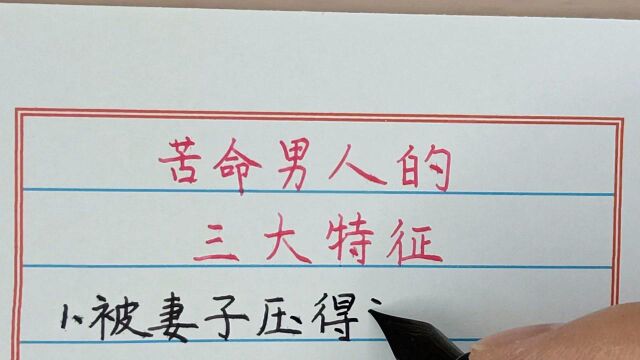 苦命男人的
三大特征
1、被妻子压得